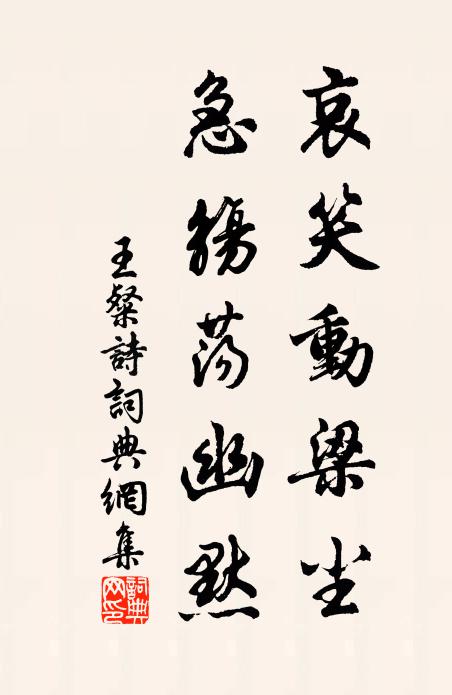 哀笑動梁塵
急觴蕩幽默
王粲詩詞典網集
詞典網印